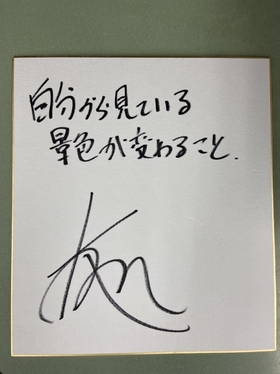 自分から見ている
景色が変わること.